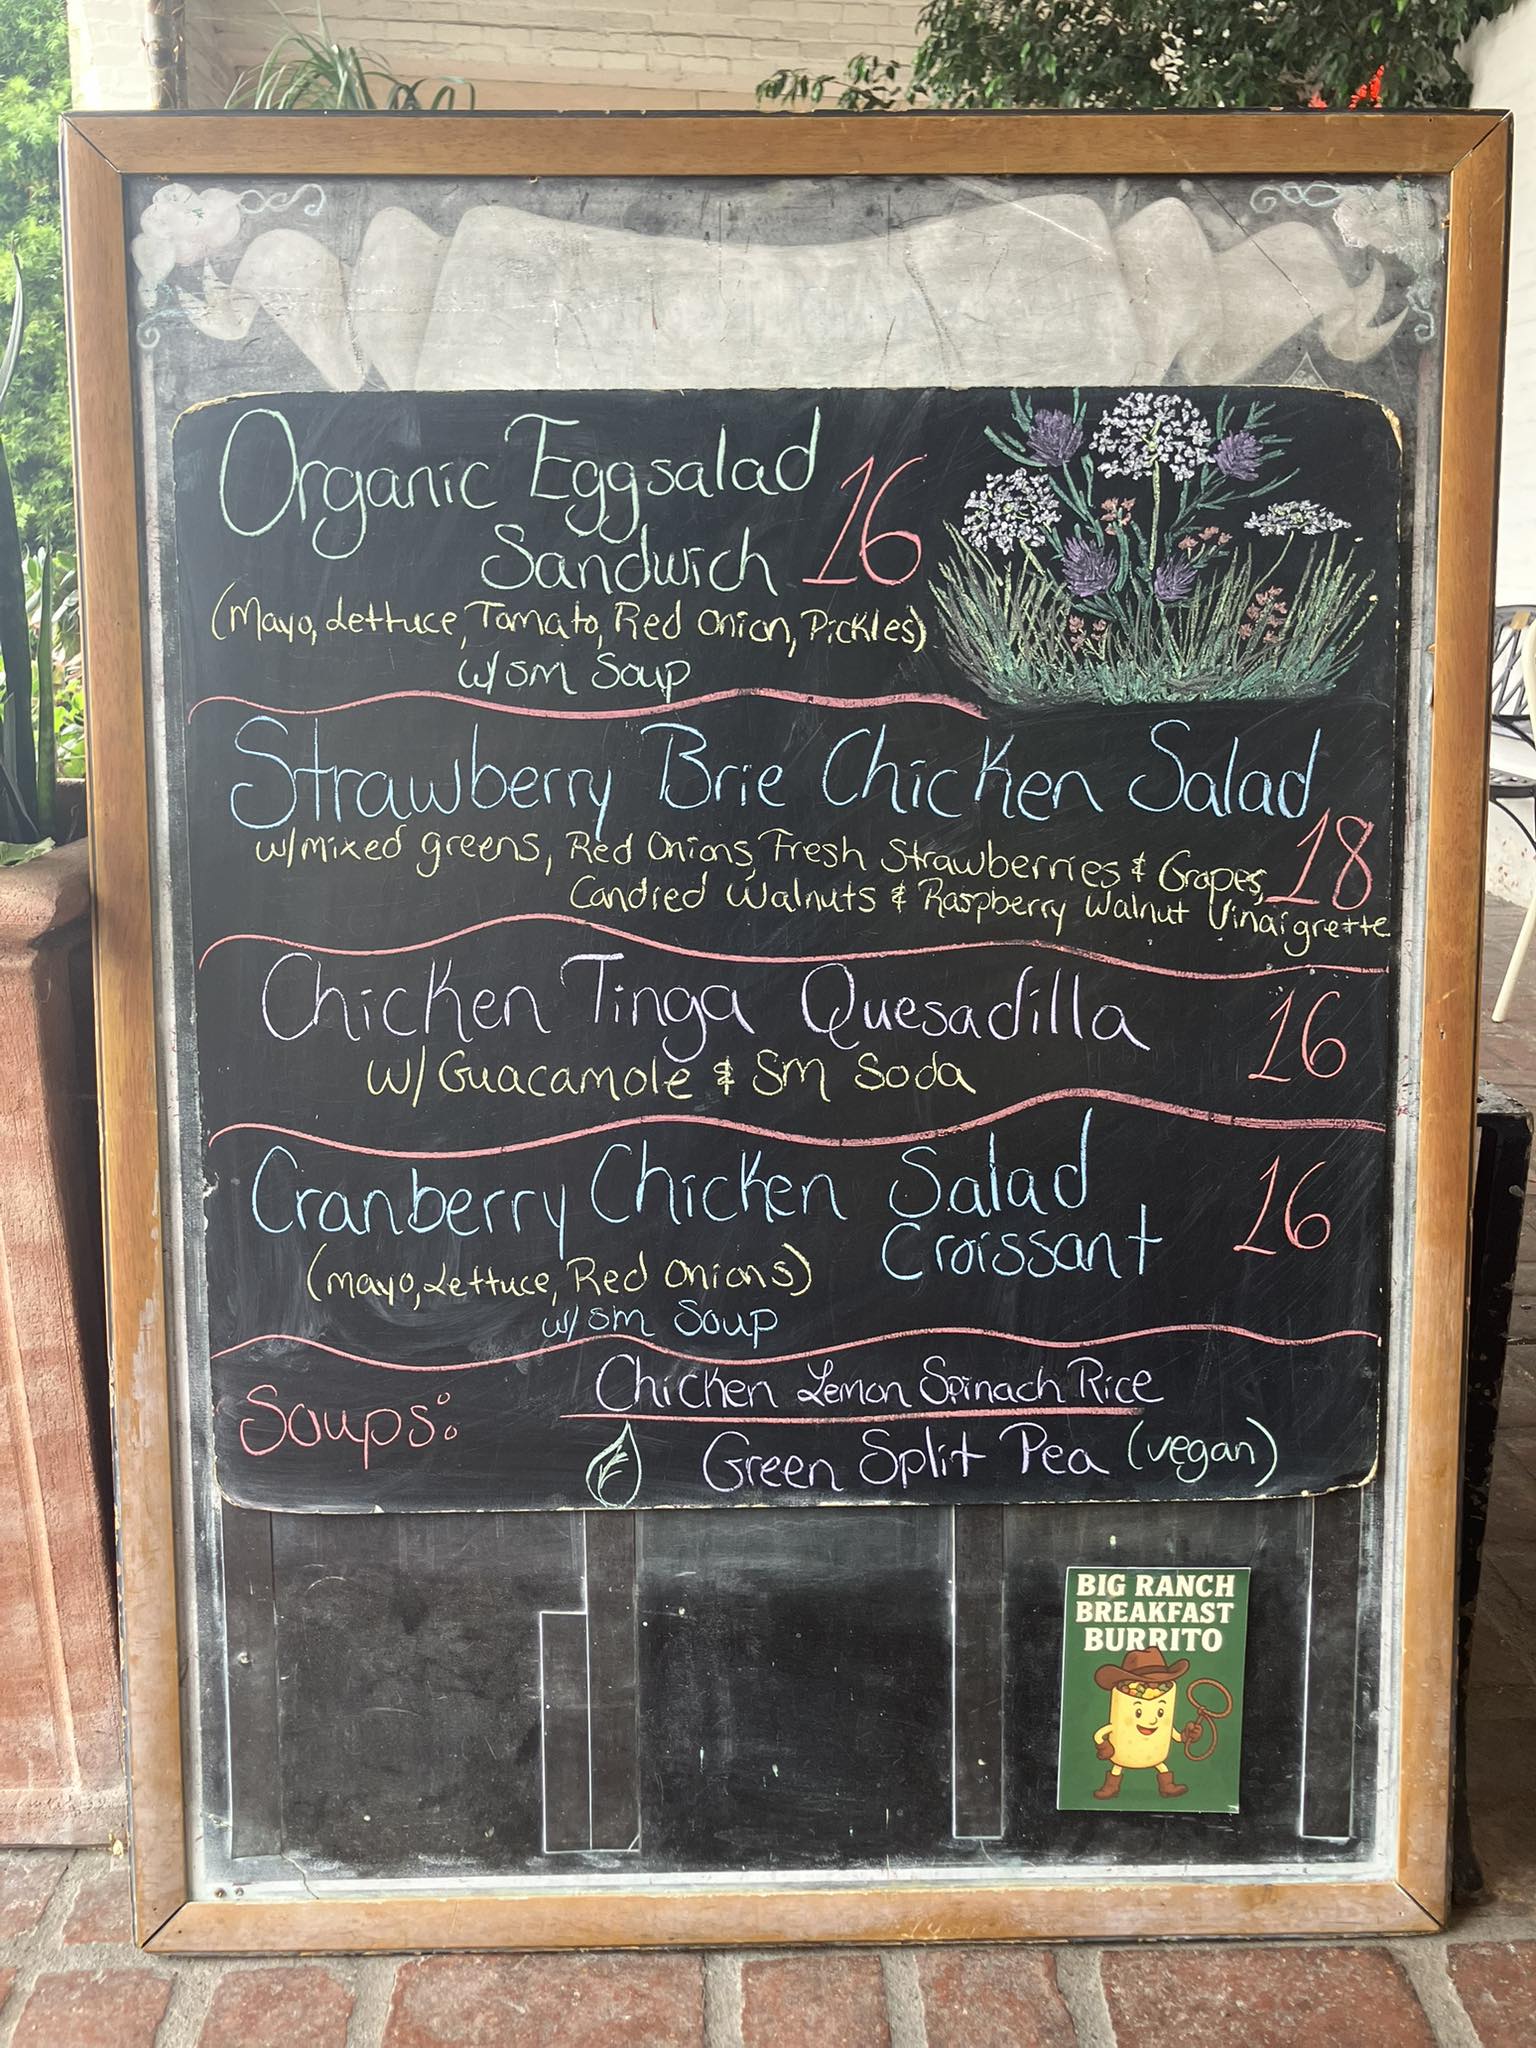 Organic Eggsalad
Sandwich 16
(Mayo, Lettuce, Tomato, Red Onion, Pickles)
w/ sm Soup
Strawberry Brie Chicken Salad
w/ mixed greens, Red Onions, Fresh Strawberries & Grapes, 18
Candied Walnuts & Raspberry Walnut Vinaigrette
Chicken Tinga Quesadilla 16
w/ Guacamole & Sm Soda
Cranberry Chicken Salad 16
Croissant
(mayo, Lettuce, Red Onions)
w/ sm Soup
Soups:
Chicken Lemon Spinach Rice
Green Split Pea (vegan)
BIG RANCH
BREAKFAST
BURRITO